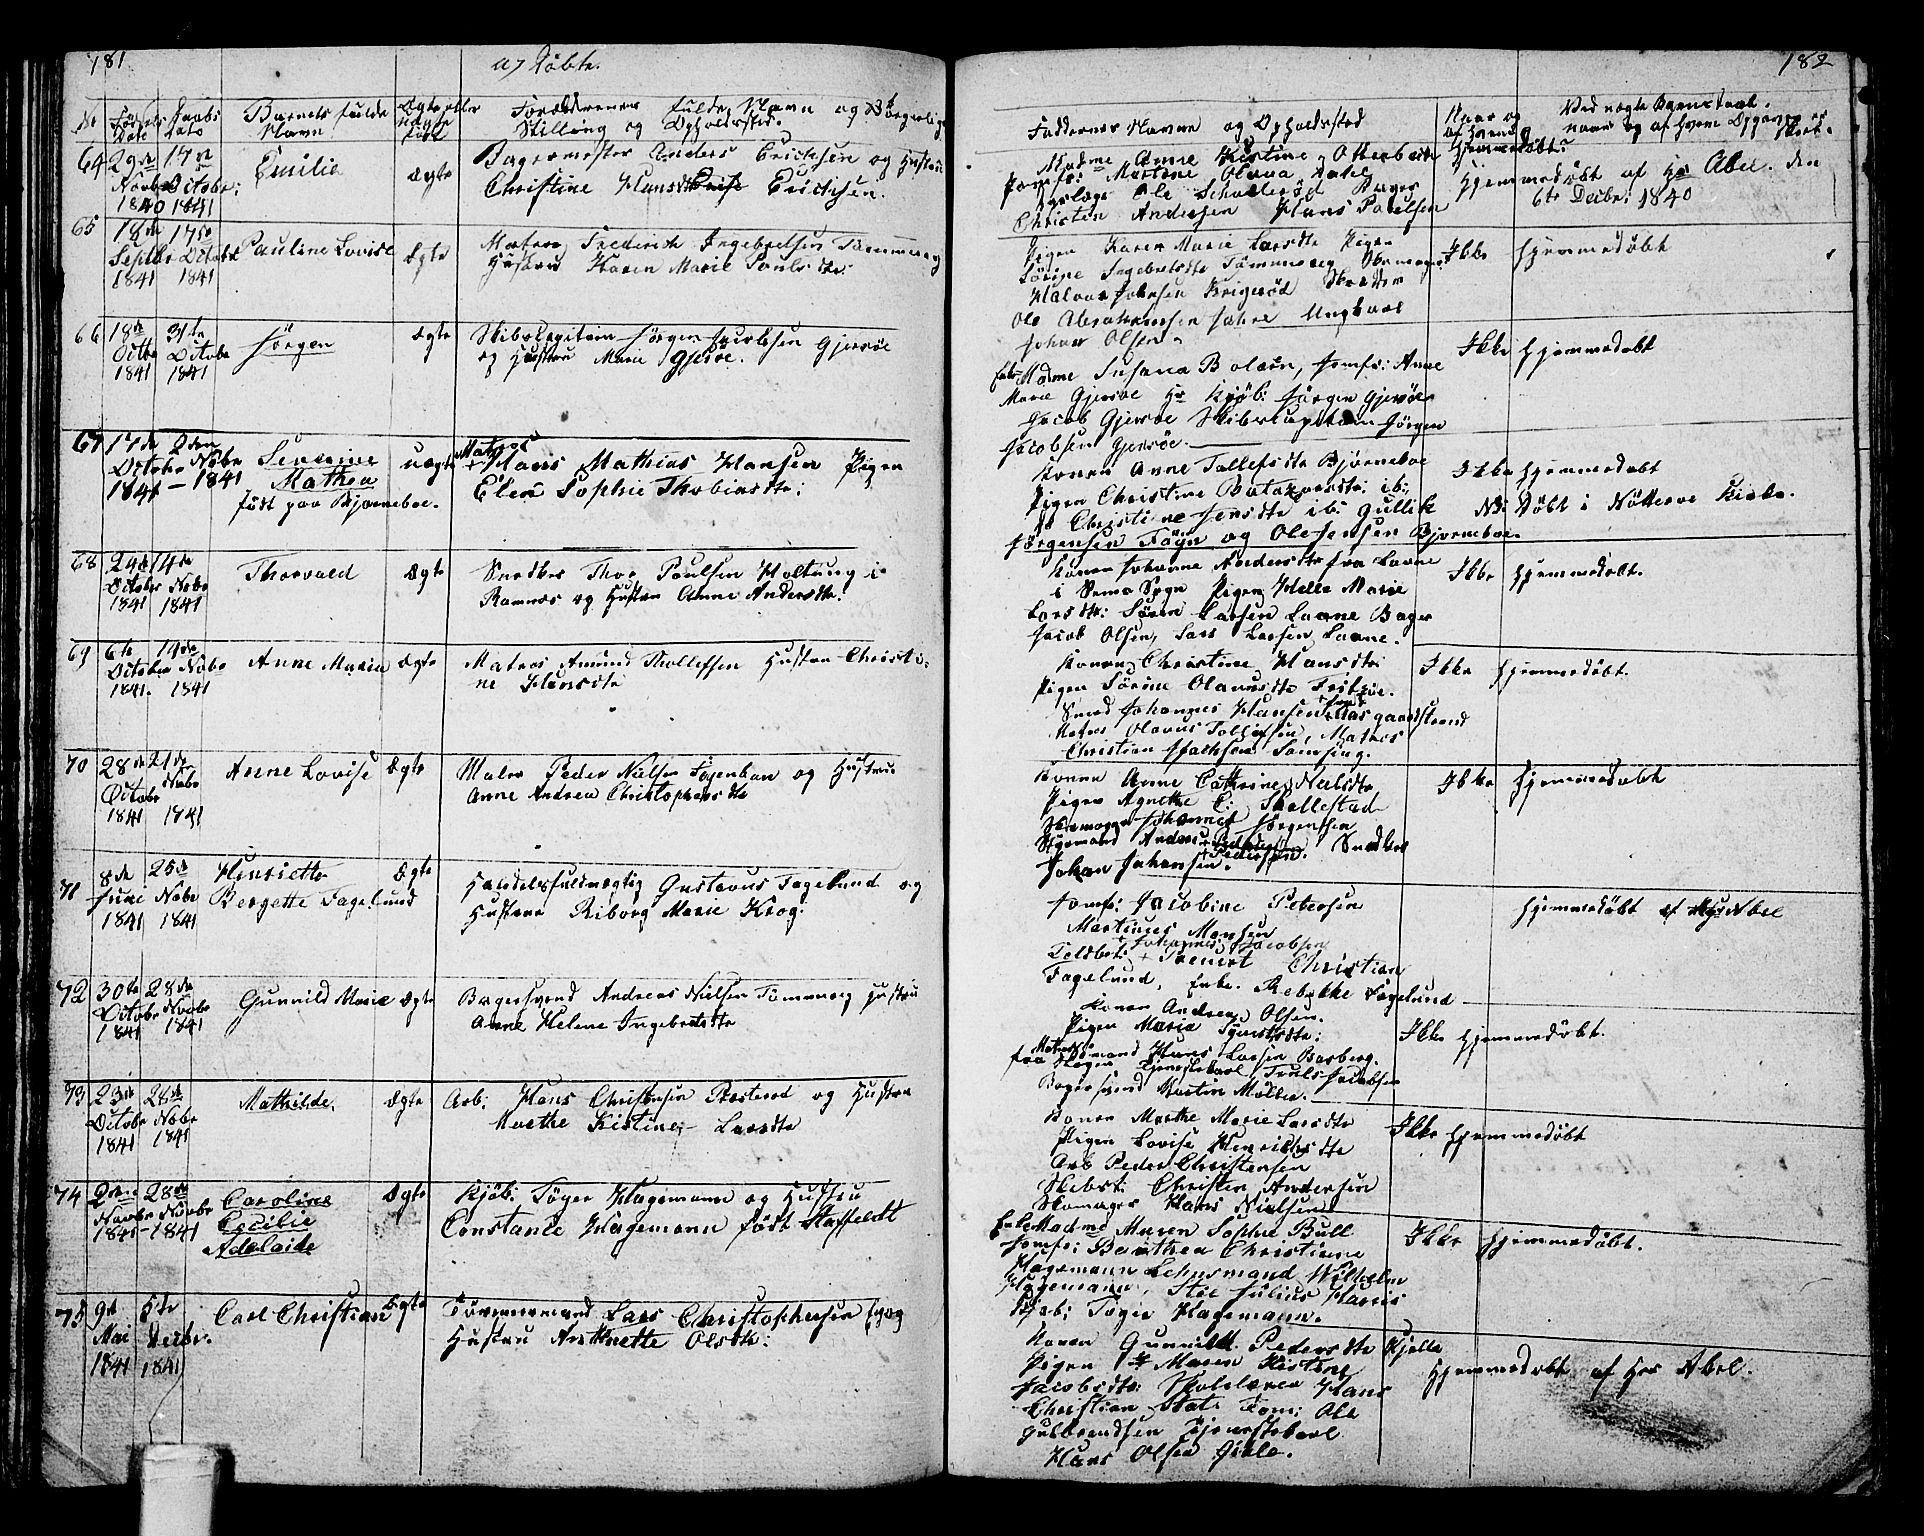 181
af Døbte.
No Fødsels Dato Daabs Dato Barnets fulde Navn Ægte eller Uægte født Forældrenes fulde Navn og Borgerlige Stilling og Opholdssted.
64 29de Novbr 1840 17de Octobr: 1841 Emilie Ægte Bagermester Anders Erichsen og Hustru
Christine Hansdtr Erichsen.
65 18de Septbr 1841 17de Octobr 1841 Pauline Lovise Ægte Matros Frederik Ingebretsen Tømmereg
Hustru Karen Marie Paulsdtr:
66 18de Octbr 1841 31te Octobr 1841 Jørgen Ægte Skibscapitain Jørgen Jacobsen Gjersøe
og Hustru Marie Gjersøe.
67 17de Octobr 1841 2den Novbr 1841 Severine Mathea født paa Bjørneboe. uægte Matros
Hans Mathias Hansen Pigen
Elen Sophie Thobiasdtr:
68 24de Octobr 1841 14de Novbr 1841 Thorvald Ægte Snedker Thor Poulsen Holtung i
Ramnæs og Hustru Anne Andersdtr:
69 6te Octobr 1841. 14de Novbr 1841 Anne Maria Ægte Matros Amund Thollefsen Hustru Christi-
ne Hansdtr
70 28de Octobr 1841 21de Novbr 1841 Anne Lovise Ægte Maler Peder Nielsen og Hustru
Anne Andrea Christophersdtr
71 8de Juni 1841 25de Novbr 1841 Henriette Bergette Fagelund Ægte Handelsfuldmægtig Gustavus Fagelund og
Hustrue Riborg Marie Krog.
72 30te Octobr 1841 28de Novbr 1841 Gunnild Marie Ægte Bagersvend Andreas Nielsen Tømmereg Hustru
Anne Helene Ingebretsdtr
73 23de Octobr 1841 28de Novbr 1841 Mathilde. Ægte Arb: Hans Christensen og Hustru
Marthe Kistine Larsdtr
74 2den Novbr 1841 28de Novbr 1841 Caroline Cecilie Adelaide Ægte Kjøb: Tøger Hagemann og Hustru
Constance Hagemann født Staffeldt
75 9de Mai 1841 5te Decbr. 1841 Carl Christian Ægte Tømmermand Lars Christophersen og
Hustru Anthonette Olsdtr:
182
Faddernes Navne og Opholdssted Naar og af hvem hjemmedøbt? Ved uægte Barns Daab. naar og af hvem Opgaven er skeet.
Madme Anne Kistine Otterbech
Jomfr: Martine Olava Dahl
Ole Schollerød Bager
Christen Andersen Hans Poulsen
Hjemmedøbt af Hr Abel. den
6te Decbr: 1840
Pigen Karen Marie Larsdtr Pigen
Sørine Ingebretsdtr Tømmereg Skomager
Halvor Johnsen Krigerød Skredder
Ole Abrahamsen Jahre Ungkarl
Johan Olsen.
Ikke hjemmedøbt
Enke Madme Susana Bolærn, Jomfr: Anne
Marie Gjersøe Hr Kjøb: Jørgen Gjersøe
Jacob Gjersøe Skibscapitain Jørgen
Jacobsen Gjersøe.
Ikke hjemmedøbt
Konen Anne Tollefsdtr Bjørneboe
Pigen Christine Baltzersdtr: ib:
do Christine Jensdtr ib: Gullik
Jørgensen Føyn og Ole Jensen Bjørneboe.
Ikke hjemmedøbt
NB: Døbt i Nøtterøe Kirke.
Konen Johanne Andersdtr fra Laane
i Semb Sogn Pigen Helle Marie
Larsdtr: Søren Larsen Laane Bager
Jacob Olsen, Lars Larsen Laane.
Ikke hjemmedøbt.
Konen Christine Hansdtr:
Pigen Sørine Olavusdtr Fritzøe.
Smed Johannes Hansen Aasgaardstrand
Matros Olavus Tollefsen, Matros
Christian
Ikke hjemmedøbt.
Konen Anne Cathrine Nielsdtr
Pigen Agnethe C: Skallestad
Skomager Johannes Jørgensen
Styrmand Anders Pedersen. Snedker
Johan Johansen.
Ikke hjemmedøbt
Jomf: Jacobine Petersen
Martinus Monsen
Toldbet: Johannes Jacobsen
Christian
Fagelund, Enke. Rebekke Fagelund
hjemmedøbt af Hr Abel
Konen Andrea Olsen.
Pigen Maria
Matros Hans Larsen Basberg.
fra Slagen, Tjenestekarl Truls Jacobsen
Bagersvend Martin Møller.
Ikke hjemmedøbt.
Konen Marthe Marie Larsdtr
Pigen Lovise Henrichsdtr
Arb Peder Christensen
Skibst: Christen Andersen
Skomager Hans Nielsen
Ikke hjemmedøbt
Enke Madme Maren Sophie Bull
Jomfr: Barthea Christiane
Hagemann Lensmand Wilhelm
Hagemann, Julius
Kjøb: Tøger Hagemann.
Ikke hjemmedøbt.
Konen Gunnild Pedersdtr Kjelle
Pigen Maren Kistine
Jacobsdtr: Skolelærer Hans
Christian Tom: Ole
Gulbrandsen Tjenestekarl
Hans Olsen
Hjemmedøbt af Hrr Abel.